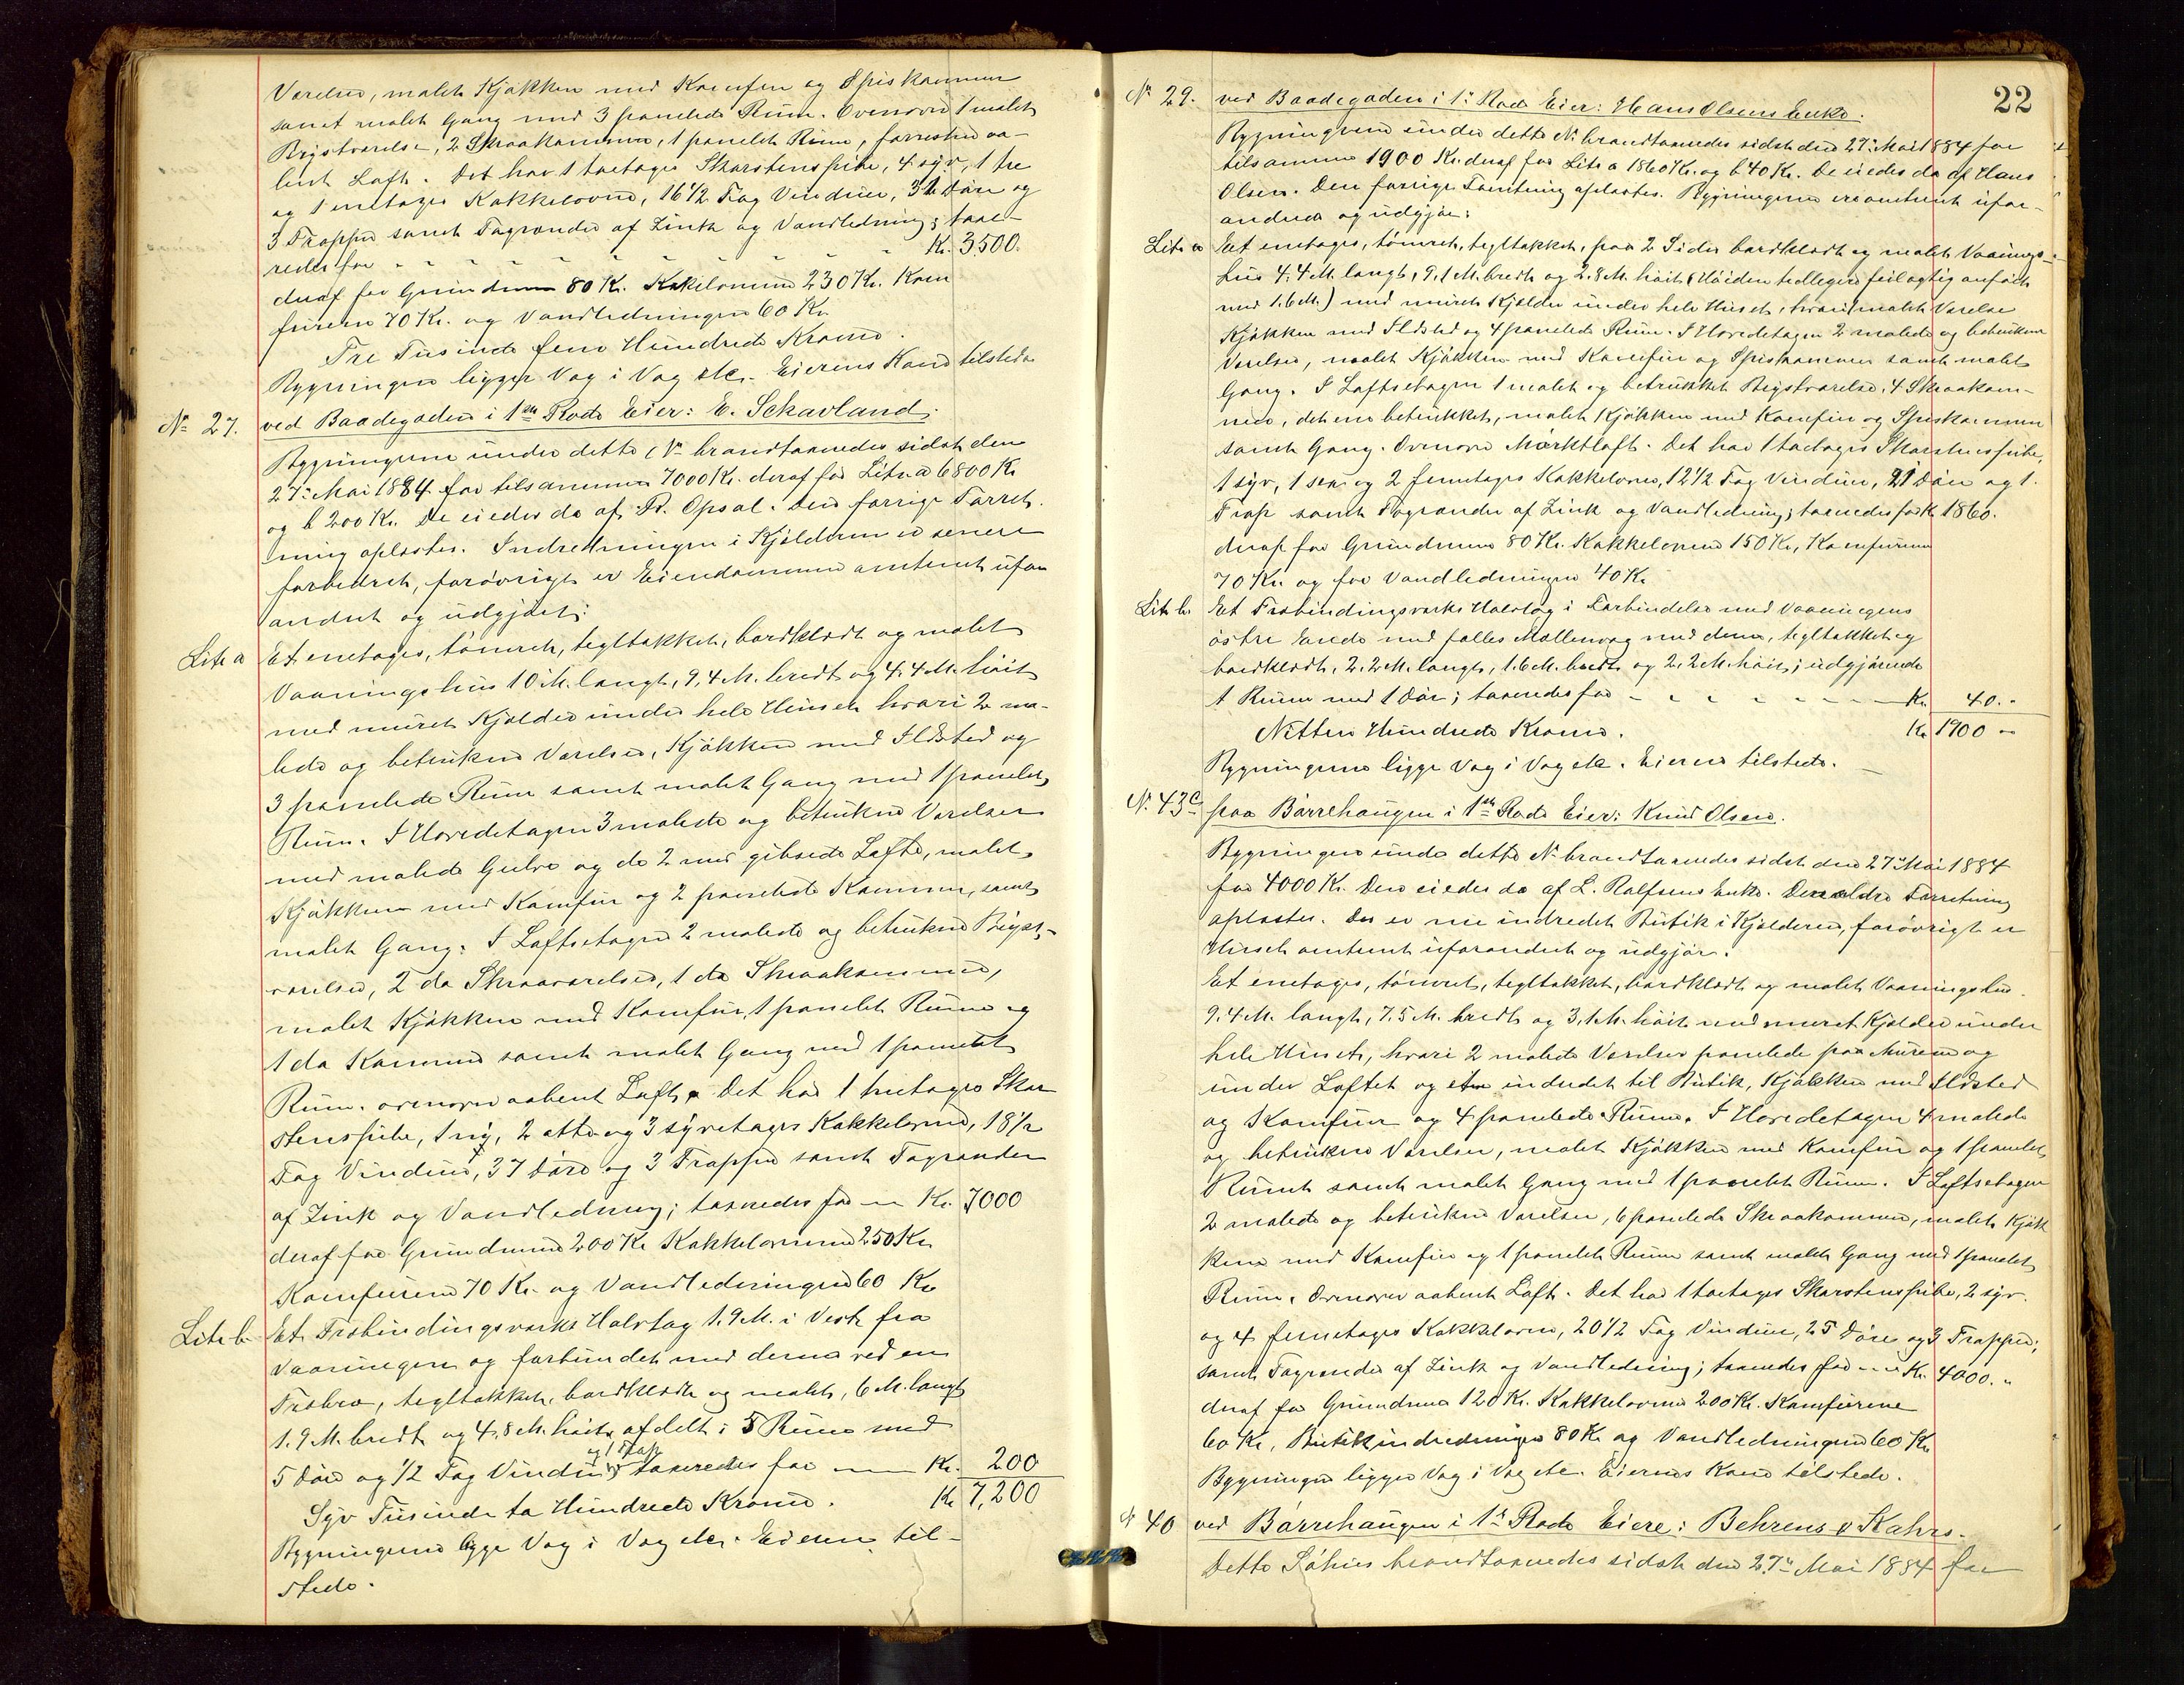 Værelser, malet Kjøkken med Komfur og Spiskammer
samt malet Gang med 3 panelede Rum. Ovenover 1 malet
Kvistværelse, 2 Skraakammere, 1 panelet Rum, forresten aa-
bent Loft. Det har 1 toetages Skorstenspibe, 4 syv, 1 tre
og 1 enetages Kakkelovne, 16 1/2 Fag Vinduer, 31 Døre og
3 Trapper samt Tagrender af Zink og Vandledning; taxe-
redes for - - - - - - - - - Kr. 3500.
deraf for Grundmuren 80 Kr. Kakelovnene 230 Kr. Kom
furene 70 Kr. og Vandledningen 60 Kr.
Tre Tusinde fem Hundrede Kroner.
Bygningen ligger Væg i Væg etc. Eierens Kone tilstede
No 27. ved Baadegaden i 1ste Rode Eier: E. Schavland.
Bygningerne under dette No brandtaxeredes sidst den
27de Mai 1884 for tilsammen 7000 Kr. deraf for Litr a 6800 Kr
og b 200 Kr. De eiedes da af R. Opsal. Den forrige Forret-
ning oplæstes. Indredningen i Kjælderen er senere
forbedret, forøvrigt er Eiendommene omtrent ufor
andret og udgjør:
Litr a Et enetages, tømret, tegltækket, bordklædt og malet
Vaaningshus 10 M. langt, 9,4 M. bredt og 4,4 M. høit
med muret Kjælder under hele Huset hvori 2 ma-
lede og betrukne Værelser, Kjøkken med Ildsted og
3 panelede Rum samt malet Gang med 1 panelet
Rum. I Hovedetagen 3 malede og betrukne Værelser
med malede Gulve og de 2 med gibsede Lofte, malet
Kjøkken med Komfur og 2 panelede Kammer, samt
malet Gang. I Loftsetagen 2 malede og betrukne Kvist-
værelser, 2 do Skraaværelser, 1 do Skraakammer,
malet Kjøkken med Komfur, 1 panelet Rum og
1 do Kammer samt malet Gang med 1 panelet
Rum. Ovenover aabent Loft. Det har 1 treetages Skor
stenspibe, 1 ny, 2 otte og 3 syvetages Kakkelovne, 18 1/2
Fag Vinduer, 37 Døre og 3 Trapper samt Tagrender
af Zink og Vandledning; taxeredes for — Kr. 7000
deraf for Grundmuren 200 Kr Kakkelovnene 250 Kr
Komfurene 70 Kr. og Vandledningen 60 Kr
Litr b. Et Træbindingsværks Halvtag 1.9 M. i Vest fra
Vaaningen og forbundet med denne ved en
Træbro, tegltækket, bordklædt og malet, 6 M. langt
1.9 M. bredt og 4,8 M. høit, afdelt i 5 Rum med
og 1 Trap
5 Døre og 1/2 Fag Vindu; taxeredes for — Kr. 200
Syv Tusinde to Hundrede Kroner. Kr 7,200
Bygningerne ligge Væg i Væg etc. Eieren til-
stede.
22
No 29. ved Baadegaden i 1ste Rode Eier: Hans Olsens Enke.
Bygningerne under dette No brandtaxeredes sidst den 27de Mai 1884 for
tilsammen 1900 Kr. deraf for Litr a 1860 Kr. og b 40 Kr. De eiedes da af Hans
Olsen. Den forrige Forretning oplæstes. Bygningerne ere omtrent ufor-
andrede og udgjør:
Litr a Et enetages, tømret, tegltækket, paa 2 Sider bordklædt og malet Vaanings-
hus 4.4 M. langt, 9.1 M. bredt og 2.8 M. høit (Høiden tidligere feilagtig anført
med 1.6 M.) med muret Kjælder under hele Huset, hvori 1 malet Værelse
Kjøkken med Ildsted og 4 panelede Rum. I Hovedetagen 2 malede og betrukne
Værelser, malet Kjøkken med Komfur og Spiskammer samt malet
Gang. I Loftsetagen 1 malet og betrukket Kvistværelse, 4 Skraakam-
mere, det ene betrukket, malet Kjøkken med Komfur og Spiskammer
samt Gang. Ovenover Mørktloft. Det har 1 toetages Skorstenspibe,
1 syv, 1 sex og 2 femetages Kakkelovne, 12 1/2 Fag Vinduer, 21 Døre og 1
Trap samt Tagrender af Zink og Vandledning; taxeredes for Kr 1860.
deraf for Grundmuren 80 Kr. Kakkelovnene 150 Kr, Komfurene
70 Kr og for Vandledningen 40 Kr
Litr b. Et Træbindingsværks Halvtag i Forbindelse med Vaaningens
østre Ende med fælles Mellemvæg med denne, tegltækket og
bordklædt, 2.2 M. langt, 1.6 M. bredt og 2.2 M. høit; udgjørende
1 Rum med 1 Dør; taxeredes for - - - - - - Kr 40..
Nitten Hundrede Kroner. Kr 1900 -
Bygningerne ligge Væg i Væg etc. Eieren tilstede.
No. 43c paa Børrehaugen i 1ste Rode Eier: Knud Olsen.
Bygningen under dette No brandtaxeredes sidst den 27de Mai 1884
for 4000 Kr. Den eiedes da af L. Rolfsens Enke. Den ældre Forretning
oplæstes. Der er nu indredet Butik i Kjælderen, forøvrigt er
Huset omtrent uforandret og udgjør.
Et enetages, tømret, tegltækket, bordklædt og malet Vaaningshus
9.4 M. langt, 7.5 M. bredt og 3,1 M. høit med muret Kjælder under
hele Huset, hvori 2 malede Værelser panelede paa Murene og
under Loftet og et indredet til Butik, Kjøkken med Ildsted
og Komfur og 4 panelede Rum. I Hovedetagen 4 malede
og betrukne Værelser, malet Kjøkken med Komfur og 1 panelet
Rum samt malet Gang med 1 panelet Rum. I Loftsetagen
2 malede og betrukne Værelser, 6 panelede Skraakammere, malet Kjøk
ken med Komfur og 1 panelet Rum samt malet Gang med 1 panelet
Rum. Ovenover aabent Loft. Det har 1 toetages Skorstenspibe, 2 syv
og 4 femetages Kakkelovne, 20 1/2 Fag Vinduer, 25 Døre og 3 Trapper;
samt Tagrender af Zink og Vandledning; taxeredes for — Kr. 4000."
deraf for Grundmuren 120 Kr. Kakkelovnene 200 Kr. Komfurene
60 Kr, Butikindredningen 80 Kr og Vandledningen 60 Kr
Bygningen ligger Væg i Væg etc. Eierens Kone tilstede.
No 40 ved Børrehaugen i 1ste Rode Eiere: Behrens & Kahrs.
Dette Søhus brandtaxeredes sidst den 27de Mai 1884 for